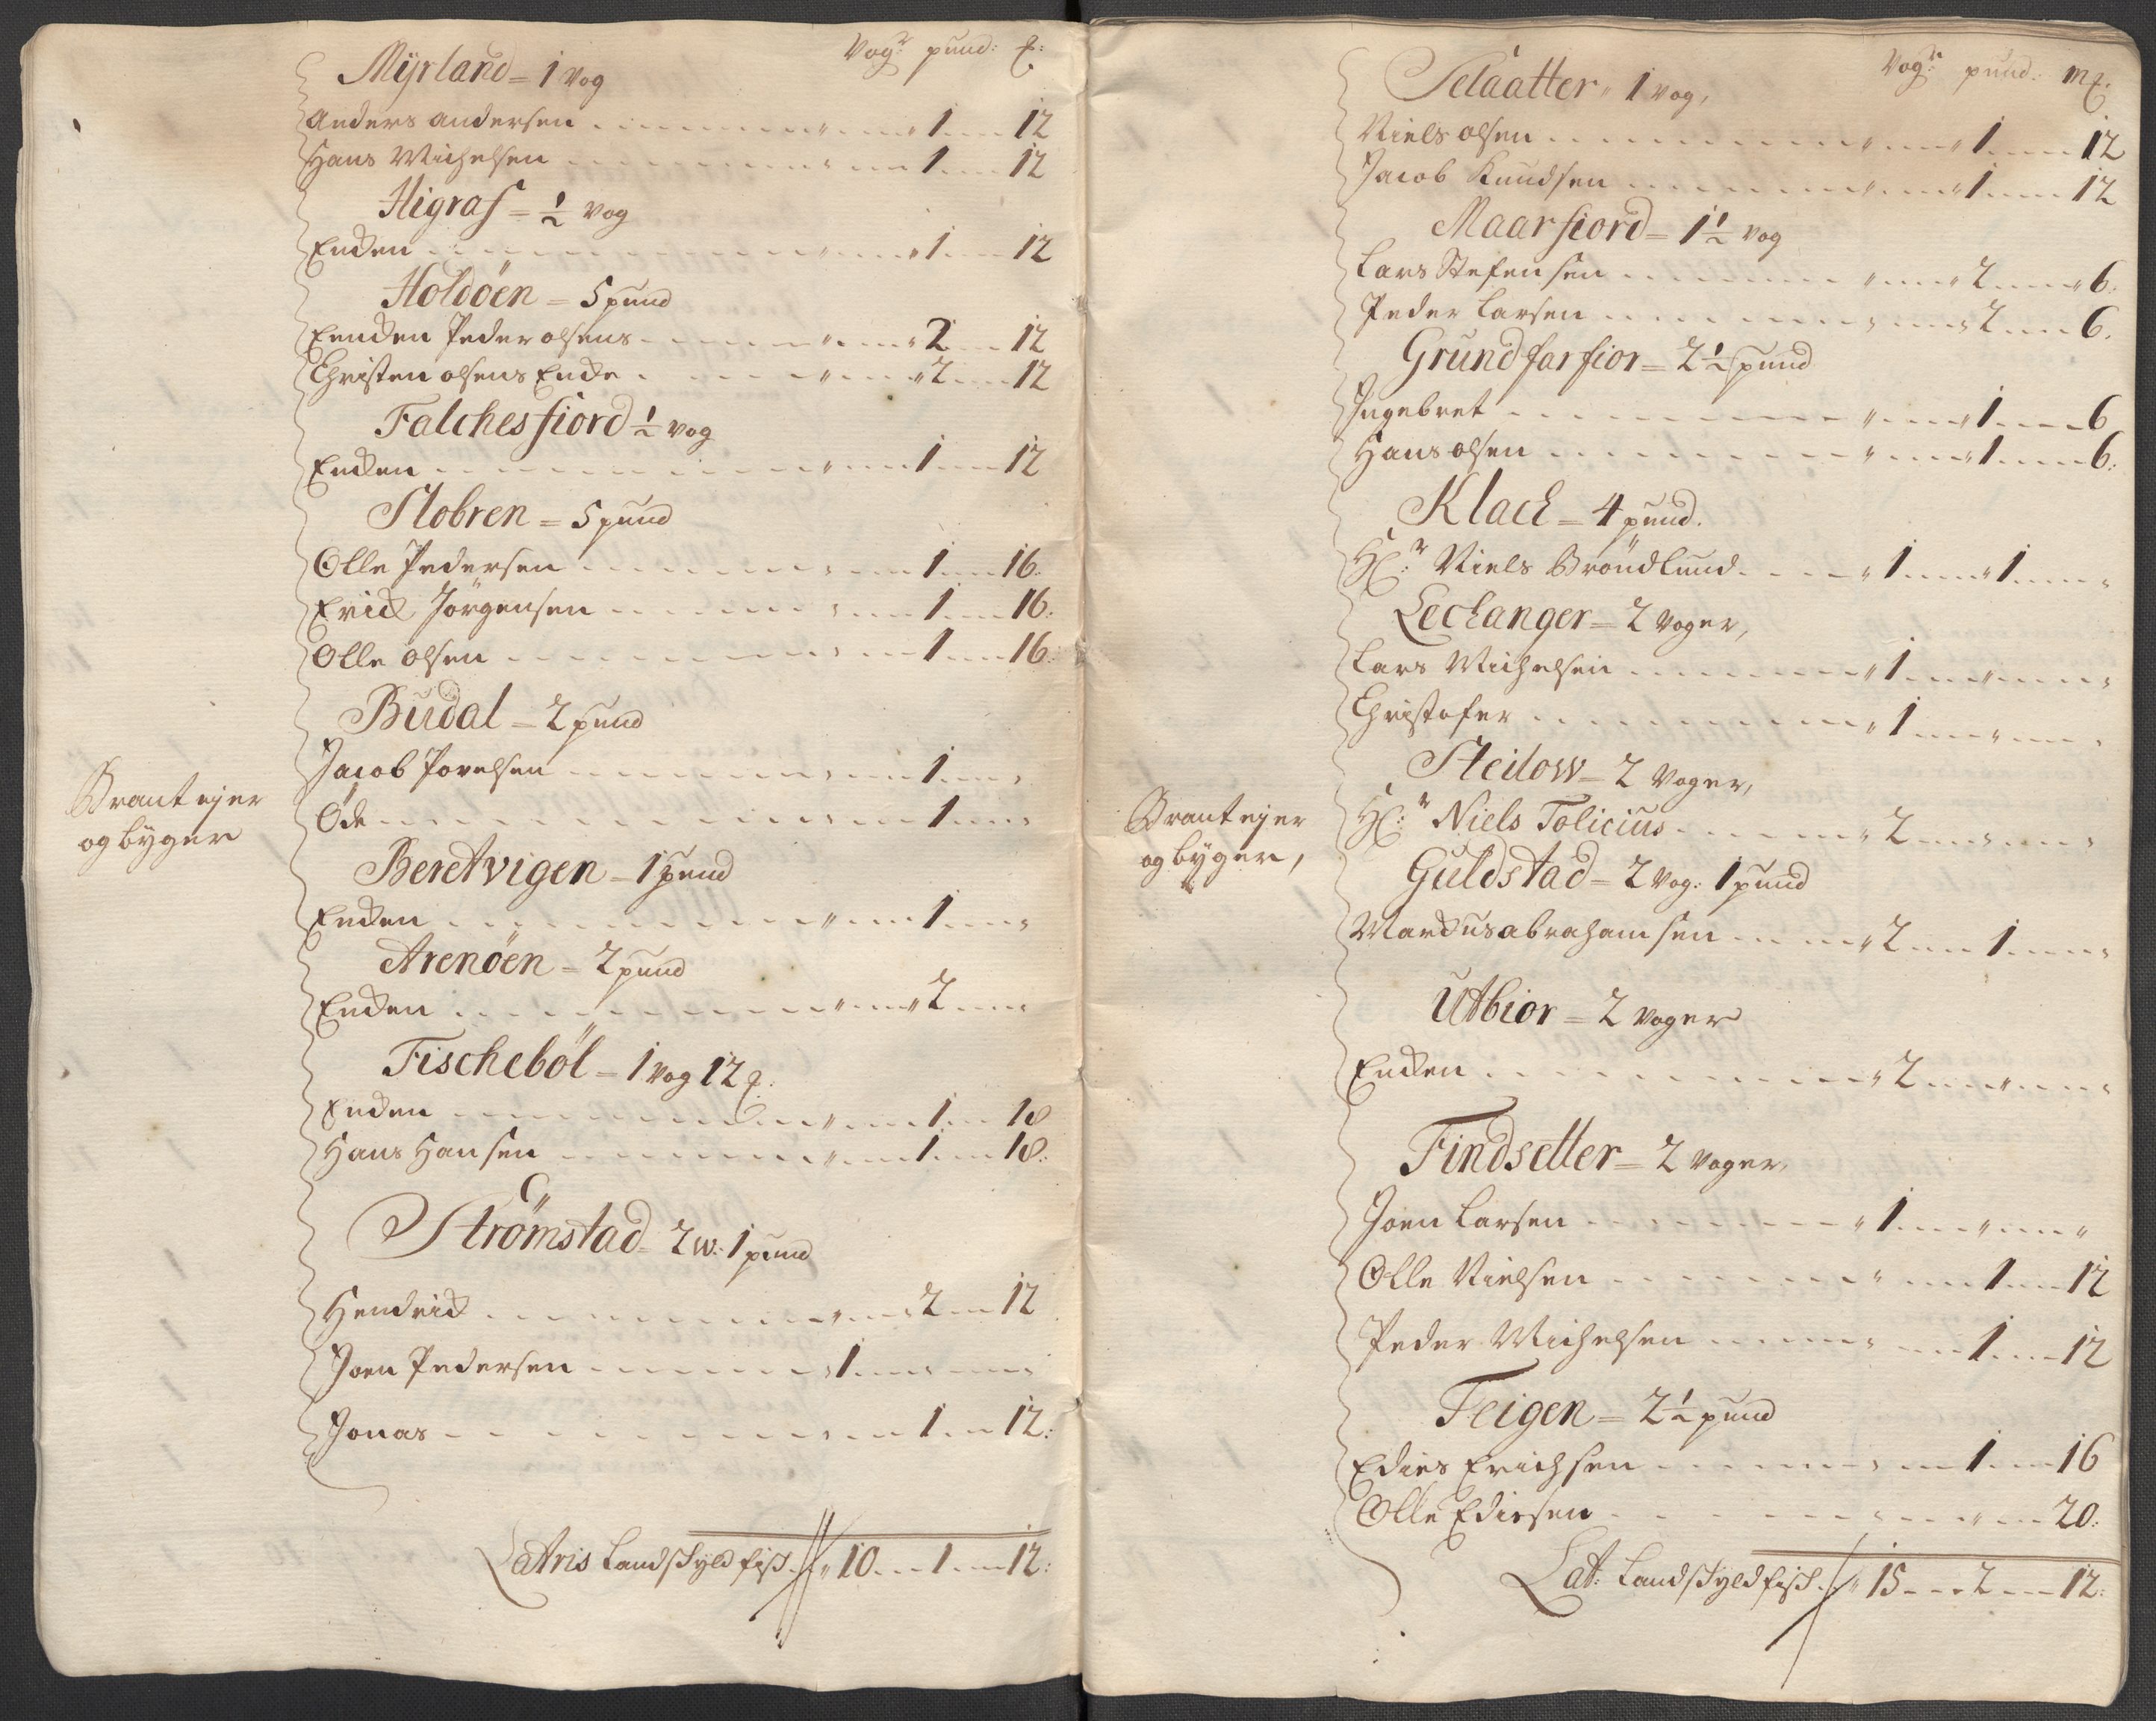 Vogr: pund: ꝟ:
Myrland = 1 vog
Anders andersen . . . „ . . „ 1 . . 12
Hans Michelsen . . . „ . . 1 . . 12
Higraf = ½ vog
Encken . . . „ . . „ 1 . . 12
Holdöen = 5 pund
Eencken Peder olsens . . . „ . . „ 2 . . 12
Christen olsens Encke . . . „ . . „ 2 . . 12
Falchesfiord ½ vog
Encken . . . „ . . 1 . . 12
Slobren = 5 pund
Olle Pedersen . . . „ . . 1 . . 16:
Erick Jörgensen . . . „ . . 1 . . 16:
Olle olsen . . . „ . . 1 . . 16:
Budal = 2 pund
Jacob Povelsen . . . „ . . 1 . . „
Brant ejer
og byger
Öde . . . „ . . 1 . . „
Beretvigen = 1 pund
Encken . . . „ . . 1 . . „
Arenöen = 2 pund
Encken . . . „ . . „ 2 . . „
Fischeböl = 1 vog 12 ꝟ:
Encken . . . „ . . 1 . . 18
Hans Hansen . . . „ . . 1 . . 18:
Strömstad = 2 w: 1 pund
Hendrick . . . „ . . 2 . . 12
Joen Pedersen . . . „ 1 . . „ . . „
Jonas . . . „ . . 1 . . 12:
Latris Landskyld fisk . „ 10 . . 1 . . 12:
Vogr: pund: mꝟ:
Selaatter „ 1 vog,
Niels olsen . . . „ . . „ 1 . . 12
Jacob Knudsen . . . „ . . „ 1 . . 12
Maarfiord = 1½ vog
Lars Stefensen . . . „ . . „ 2 . . „ 6:
Peder Larsen . . . „ . . „ 2 . . 6.
Grundfarfior = 2½ pund
Ingebret . . . „ . . „ 1 . . 6
Hans olsen . . . „ . . „ 1 . . 6:
Klack = 4 pund.
Hr: Niels Bröndlund . . . „ 1 . . „ 1 . . „
Leckanger = 2 voger,
Lars Michelsen . . . „ 1 . . „ . . „
Christofer . . . „ 1 . . „ . . „
Steilow = 2 voger,
Brant ejer
og byger,
Hr: Niels Tolicius . . . „ 2 . . „ . . „
Guldstad = 2 vog: 1 pund
Marckus abrahamsen . . . „ 2 . . 1 . . „
Utbior = 2 voger
Encken . . . „ 2 . . „ . . „
Findsetter = 2 voger,
Joen Larsen . . . „ 1 . . „ . . „
Olle Nielsen . . . „ . . 1 . . 12
Peder Michelsen . . . „ . . 1 . . 12
Feigen = 2½ pund
Edies Erichsen . . . „ . . 1 . . 16
Olle Ediesen . . . „ . . „ . . 20:
Lat: Landskyld fisk . „ 15 . . 2 . . 12: